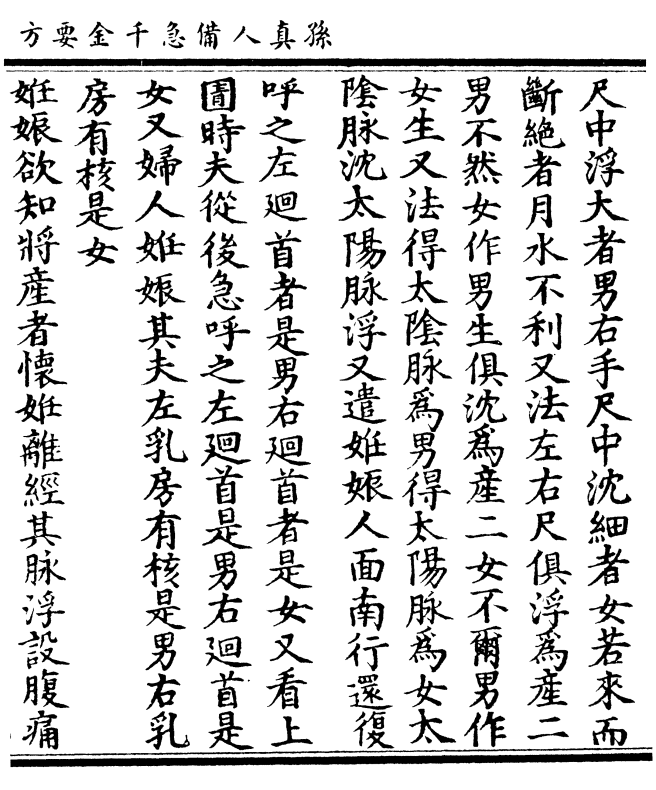 孫真人備急千金要方
尺中浮大者男右手尺中沈細者女若來而
斷絕者月水不利又法左右尺俱浮爲産二
男不然女作男生俱沈爲産二女不爾男作
女生又法得太陰脉爲男得太陽脉爲女太
陰脉沈太陽脉浮又遣姙娠人面南行還復
呼之左迴首者是男右迴首者是女又看上
圊時夫從後急呼之左迴首是男右迴首是
女又婦人姙娠其夫左乳房有核是男右乳
房有核是女
姙娠欲知將産者懷姙離經其脉浮設腹痛